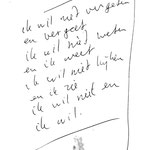 ik wil niet vergeten
en vergeet
ik wil niet weten
en ik weet
ik wil niet kijken
en ik zie
ik wil niet en
ik wil.